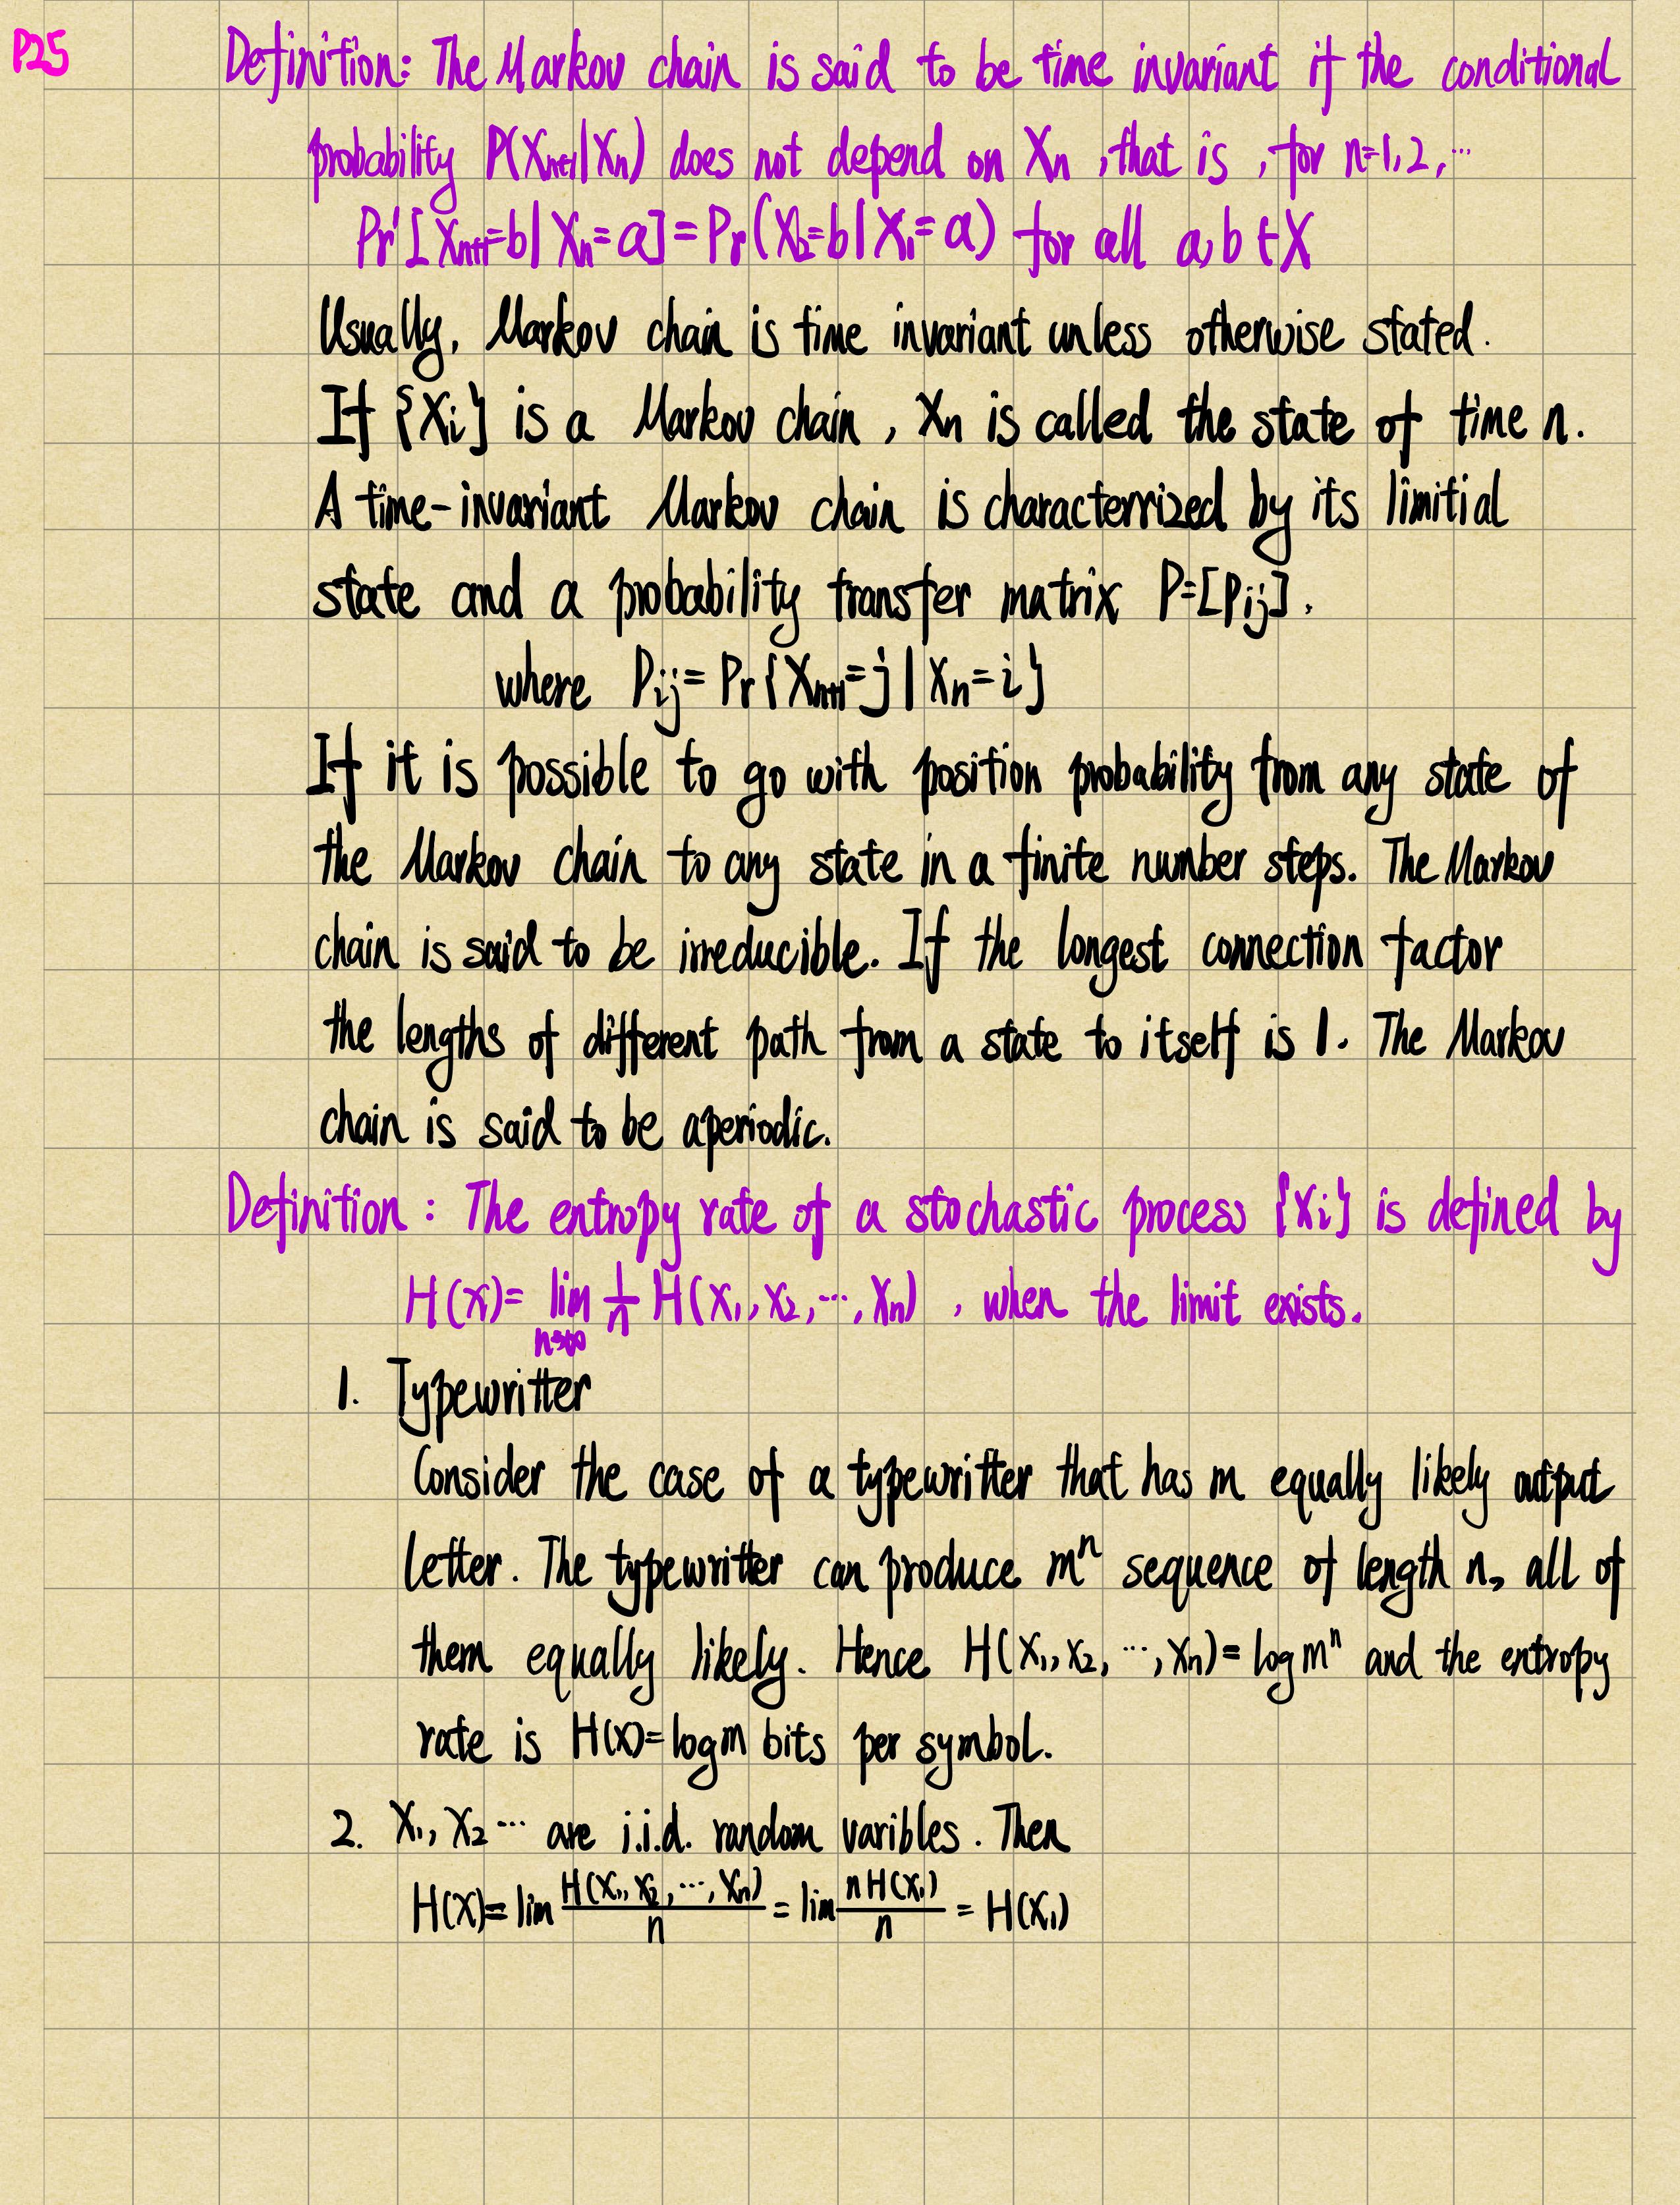 P25
Definition: The Markov chain is said to be time invariant if the conditional
probability P(Xn+1|Xn) does not depend on Xn, that is, for n=1,2,...
Pr[Xn+1=b|Xn=a]=Pr(X2=b|X1=a) for all a,b ∈ X
Usually, Markov chain is time invariant unless otherwise stated.
If {Xi} is a Markov chain, Xn is called the state of time n.
A time-invariant Markov chain is characterrized by its limitial
state and a probability transfer matrix P=[Pij].
where Pij=Pr{Xn+1=j|Xn=i}
If it is possible to go with position probability from any state of
the Markov chain to any state in a finite number steps. The Markov
chain is said to be irreducible. If the longest connection factor
the lengths of different path from a state to itself is 1. The Markov
chain is said to be aperiodic.
Definition: The entropy rate of a stochastic process {Xi} is defined by
H(X)= lim n→∞ 1/n H(X1,X2,...,Xn), when the limit exists.
1. Typewritter
Consider the case of a typewritter that has m equally likely output
letter. The typewritter can produce m^n sequence of length n, all of
them equally likely. Hence H(X1,X2,...,Xn)=log m^n and the entropy
rate is H(X)=log m bits per symbol.
2. X1,X2... are i.i.d. random varibles. Then
H(X)=lim H(X1,X2,...,Xn)/n = lim nH(X1)/n = H(X1)